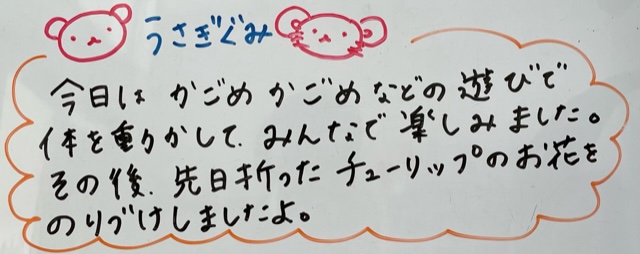 うさぎぐみ
今日は かごめかごめなどの遊びで
体を動かして、みんなで楽しみました。
その後、先日折ったチューリップのお花を
のりづけしましたよ。